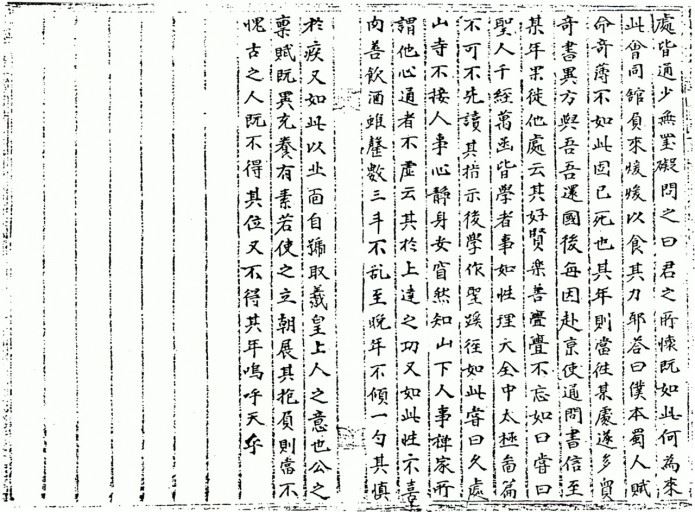 處皆通少無罣礙問之曰君之所懷既如此何為來
此會同館負來煖煖以食其力耶答曰僕本蜀人賦
命奇薄不如此固已死也其年則當徃某處遂多貿
奇書異方與吾吾還國後每因赴京使通問書信至
某年果徙他處云其好賢樂善亹亹不忘如曰嘗曰
聖人千經萬函皆學者事如性理大全中太極啚篇
不可不先讀其指示後學作聖蹊徑如此嘗曰久處
山寺不接人事心靜身安窅然知山下人事禪家所
謂他心通者不虛云其於上達之功又如此性不喜
內善飲酒雖罄數三斗不亂至晚年不傾一勺其慎
於疾又如此以北面自猗取羲皇上人之意也公之
稟賦既異充養有素若使之立朝展其抱負則當不
愧古之人既不得其位又不得其年嗚呼天乎